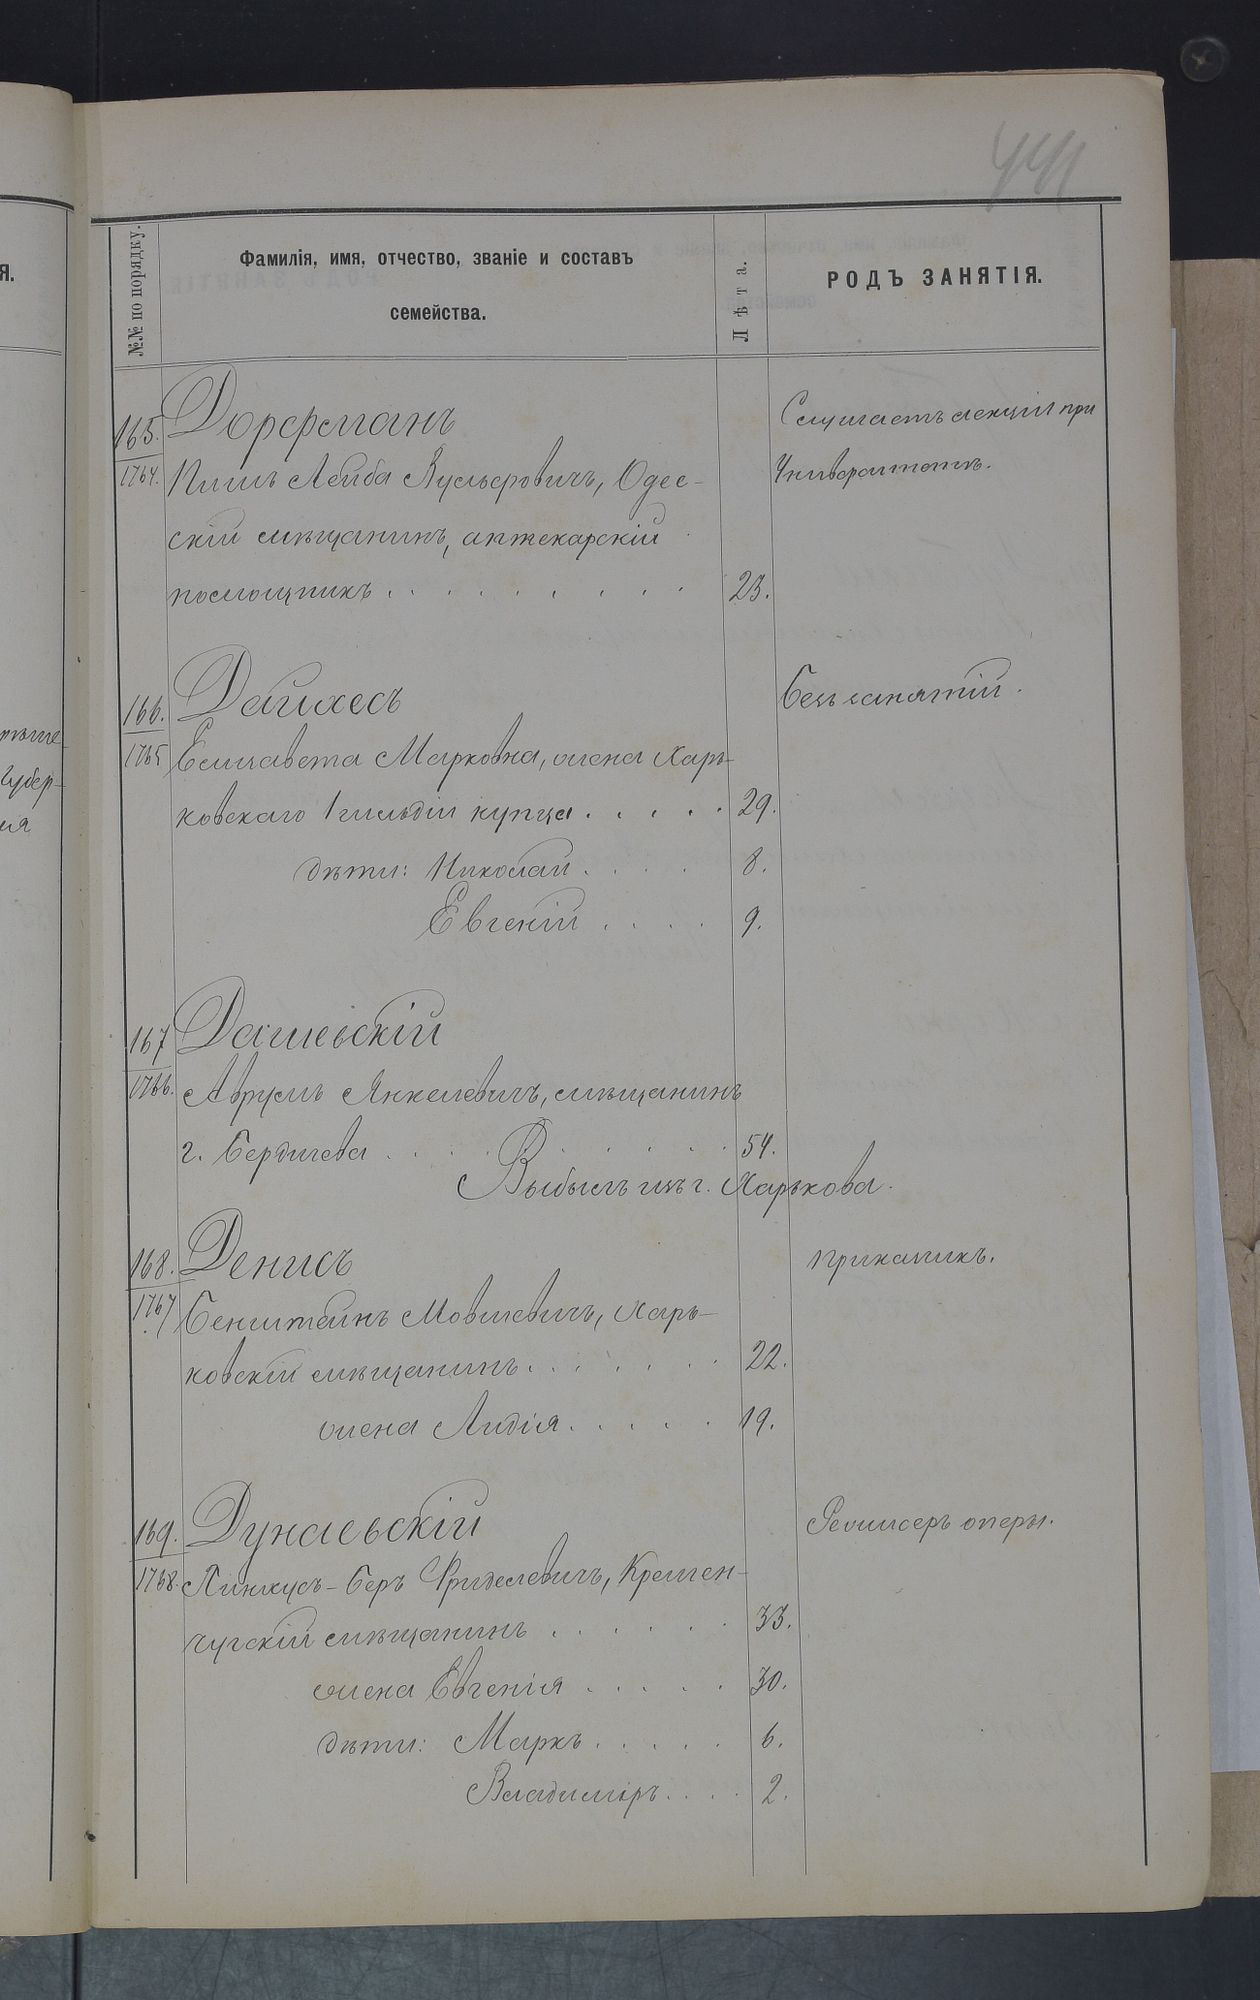 441
№№ по порядку.
Фамилія, имя, отчество, званіе и составъ
семейства.
Лѣта.
РОДЪ ЗАНЯТІЯ.
165. Дорфманъ
Слушаетъ лекціи при
1764. Лейба Вульфовичъ, Одес-
Университетѣ.
скій мѣщанинъ, аптекарскій
помощникъ . . . . . . . . 23.
166. Дайхесъ
безъ занятій.
1765 Елизавета Марковна, жена Харь-
ковскаго 1 гильдіи купца . . . . . 29.
дѣти: Николай . . . . 8.
Евгеній . . . . 9.
167 Дашевскій
1766. Аврумъ Янкелевичъ, мѣщанинъ
г. Бердичева . . . . . . . . 54.
Выбылъ изъ г. Харькова.
168. Денисъ
приказчикъ.
1767 Мовшевичъ, Харь-
ковскій мѣщанинъ . . . . . . 22.
жена Лидія . . . . . 19.
169. Дунаевскій
Режиссеръ оперы.
1768. Пинкусъ-Беръ Фриделевичъ, Кремен-
чугскій мѣщанинъ . . . . . . 33.
жена Евгенія . . . . . 30.
дѣти: Маркъ . . . . . 6.
Владиміръ . . . . 2.
Я.
Губер-
ія